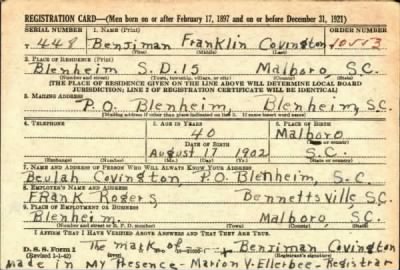 REGISTRATION CARD—(Men born on or after February 17, 1897 and on or before December 31, 1921)
SERIAL NUMBER 1. NAME (Print) ORDER NUMBER
T 448 Benjiman Franklin Covington 10553
(First) (Middle) (Last)
2. PLACE OF RESIDENCE (Print)
Blenheim S. DIS Malboro, S.C.
(Number and street) (Town, township, village, or city) (County) (State)
[THE PLACE OF RESIDENCE GIVEN ON THE LINE ABOVE WILL DETERMINE LOCAL BOARD
JURISDICTION; LINE 2 OF REGISTRATION CERTIFICATE WILL BE IDENTICAL]
3. MAILING ADDRESS
P.O. Blenheim, Blenheim, S.C.
[Mailing address if other than place indicated on line 2. If same insert word same]
4. TELEPHONE 5. AGE IN YEARS 6. PLACE OF BIRTH
40 Malboro
DATE OF BIRTH (Town or county)
August 17 1902 S.C.
(Exchange) (Number) (Mo.) (Day) (Yr.) (State or country)
7. NAME AND ADDRESS OF PERSON WHO WILL ALWAYS KNOW YOUR ADDRESS
Beulah Covington P.O. Blenheim, S.C.
8. EMPLOYER'S NAME AND ADDRESS
Frank Rogers, Bennettsville S.C.
9. PLACE OF EMPLOYMENT OR BUSINESS
Blenheim. Malboro S.C.
(Number and street or R. F. D. number) (Town) (County) (State)
I AFFIRM THAT I HAVE VERIFIED ABOVE ANSWERS AND THAT THEY ARE TRUE.
D. S. S. Form 1 The mark of + Benziman Covington
(Revised 1-1-42) (Registrant's signature)
made in my presence - Marion V. Ellerbee Registrar